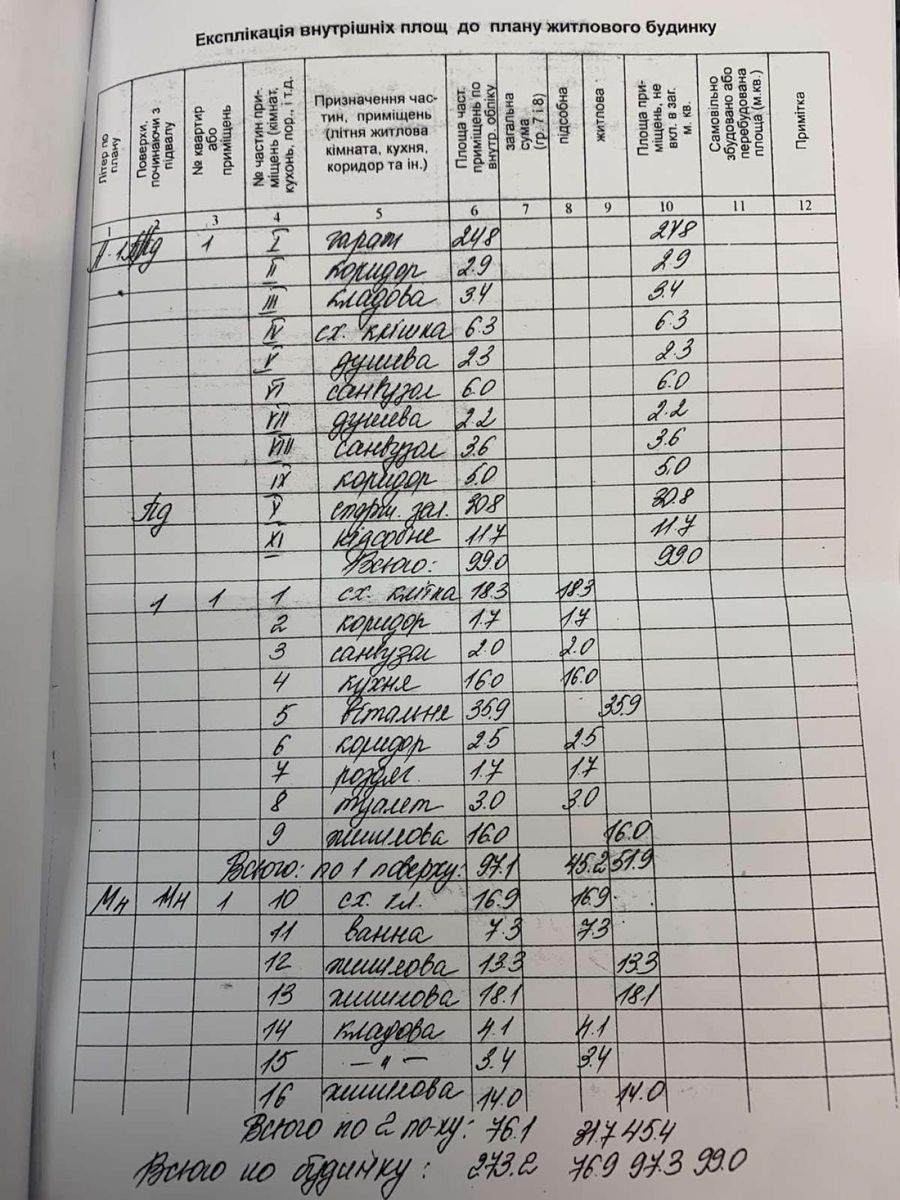 Експлікація внутрішніх площ до плану житлового будинку
Літер по плану | Поверхи, починаючи з підвалу | № квартир або приміщень | № частин приміщень (кімнат, кухонь, пор., і т.д. | Призначення частин, приміщень (літня житлова кімната, кухня, коридор та ін.) | Площа част. приміщень по внутр. обліку | загальна сума (гр. 7 і 8) | підсобна | житлова | Площа приміщень, не вкл. в заг. м. кв. | Самовільно збудовано або перебудована площа (м.кв.) | Примітка
1 2 3 4 5 6 7 8 9 10 11 12
Пд 1 I гараж 24.8 24.8
II коридор 2.9 2.9
III кладова 3.4 3.4
IV сх. клішка 6.3 6.3
V душева 2.3 2.3
VI санвузол 6.0 6.0
VII душева 2.2 2.2
VIII санвузол 3.6 3.6
IX коридор 5.0 5.0
Пд X спорт. зал. 30.8 30.8
XI підсобне 11.7 11.7
Всього: 99.0 99.0
1 1 1 сх. клітка 18.3 18.3
2 коридор 1.7 1.7
3 санвузол 2.0 2.0
4 кухня 16.0 16.0
5 вітальня 35.9 35.9
6 коридор 2.5 2.5
7 роздяг. 1.7 1.7
8 туалет 3.0 3.0
9 житлова 16.0 16.0
Всього: по 1 поверху: 97.1 45.2 51.9
Мн Мн 1 10 сх. кл. 16.9 16.9
11 ванна 7.3 7.3
12 житлова 13.3 13.3
13 житлова 18.1 18.1
14 кладова 4.1 4.1
15 — " — 3.4 3.4
16 житлова 14.0 14.0
Всього по 2 по-ху: 76.1 31.7 45.4
Всього по будинку: 273.2 76.9 97.3 99.0